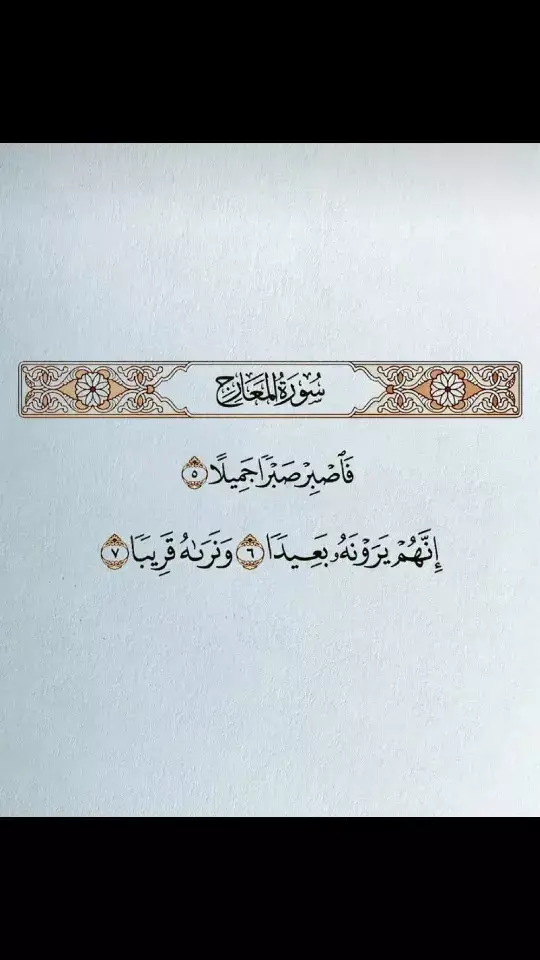 سُورَةُ المَعَارِجِ
فَٱصْبِرْ صَبْرًا جَمِيلًا ٥
إِنَّهُمْ يَرَوْنَهُۥ بَعِيدًا ٦ وَنَرَىٰهُ قَرِيبًا ٧